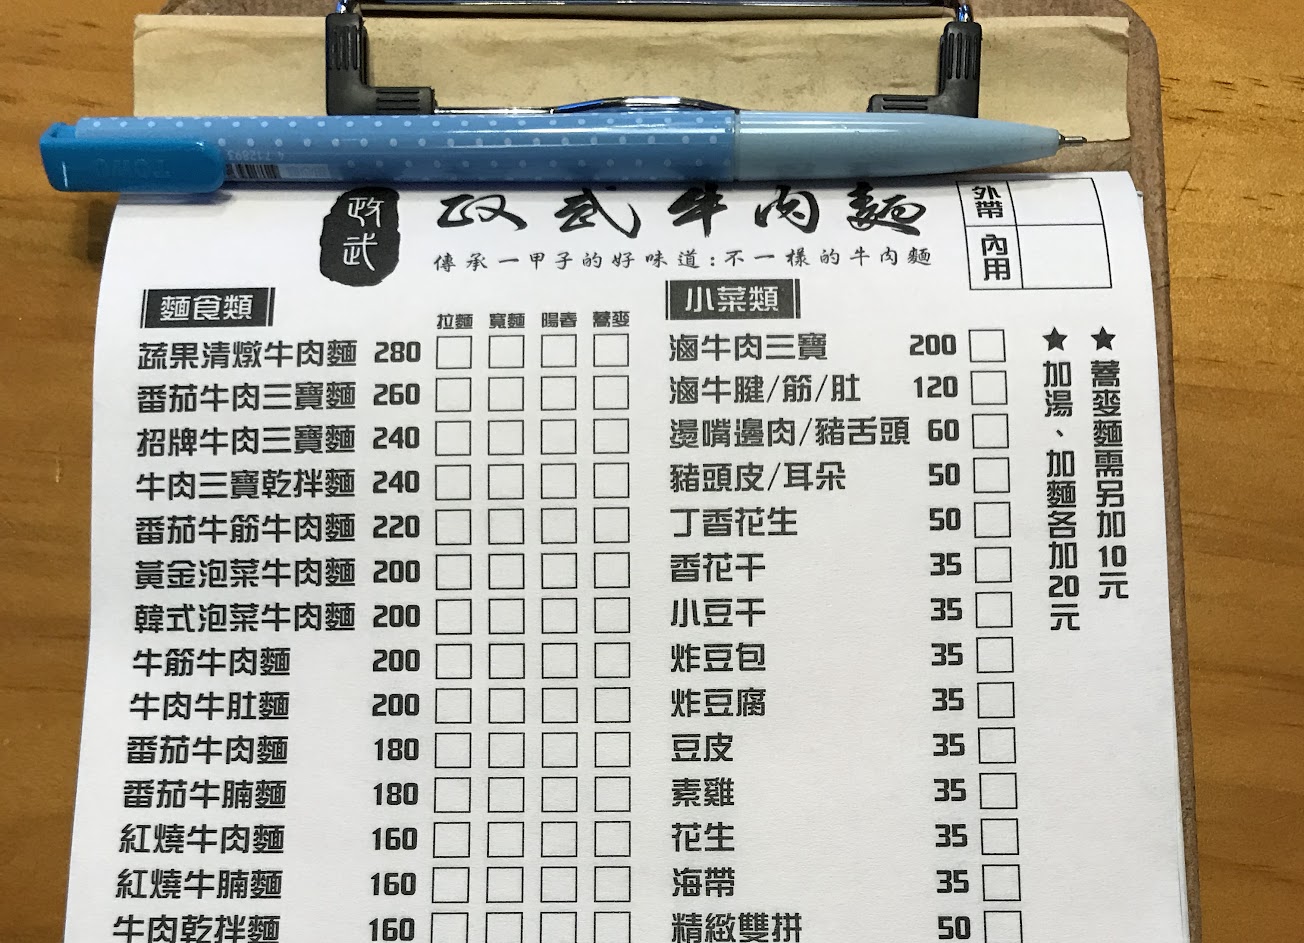 政武
政武牛肉麵
傳承一甲子的好味道:不一樣的牛肉麵
外帶
內用
麵食類
拉麵 寬麵 陽春 蕎麥
蔬果清燉牛肉麵 280
番茄牛肉三寶麵 260
招牌牛肉三寶麵 240
牛肉三寶乾拌麵 240
番茄牛筋牛肉麵 220
黃金泡菜牛肉麵 200
韓式泡菜牛肉麵 200
牛筋牛肉麵 200
牛肉牛肚麵 200
番茄牛肉麵 180
番茄牛腩麵 180
紅燒牛肉麵 160
紅燒牛腩麵 160
牛肉乾拌麵 160
小菜類
滷牛肉三寶 200
滷牛腱/筋/肚 120
燙嘴邊肉/豬舌頭 60
豬頭皮/耳朵 50
丁香花生 50
香花干 35
小豆干 35
炸豆包 35
炸豆腐 35
豆皮 35
素雞 35
花生 35
海帶 35
精緻雙拼 50
★蕎麥麵需另加10元
★加湯、加麵各加20元